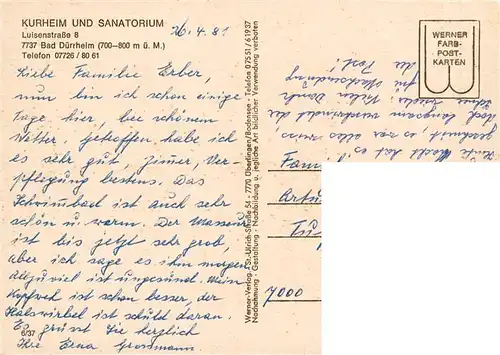 KURHEIM UND SANATORIUM
Luisenstraße 8
7737 Bad Dürrheim (700–800 m ü. M.)
Telefon 07726 / 80 61
26.4.81
Liebe Familie Erber,
nun bin ich schon einige
Tage hier, bei schönem
Wetter, getroffen habe ich
es sehr gut, Zimmer, Ver-
pflegung bestens. Das
Schwimmbad ist auch sehr
schön u. warm. Der Masseur
ist bis jetzt sehr grob,
aber ich sage es ihm morgen
allzuviel ist ungesund. Mein
Kopfweh ist schon besser, der
Halswirbel ist schuld daran.
Es grüsst Sie herzlich
Ihre Erna Grossmann
6/37
Werner-Verlag · St.-Ulrich-Straße 54 · 7770 Überlingen/Bodensee · Telefon 07551/61937
Nachahmung - Gestaltung - Nachbildung u. jegliche Art bildlicher Verwendung verboten
WERNER
FARB-
POST-
KARTEN
Heute Nacht hat es
geschneit, es war alles weiss,
doch langsam verschwindet der
Vielen Dank
für Nachsendung
der Post!
Fam
Artu
7000